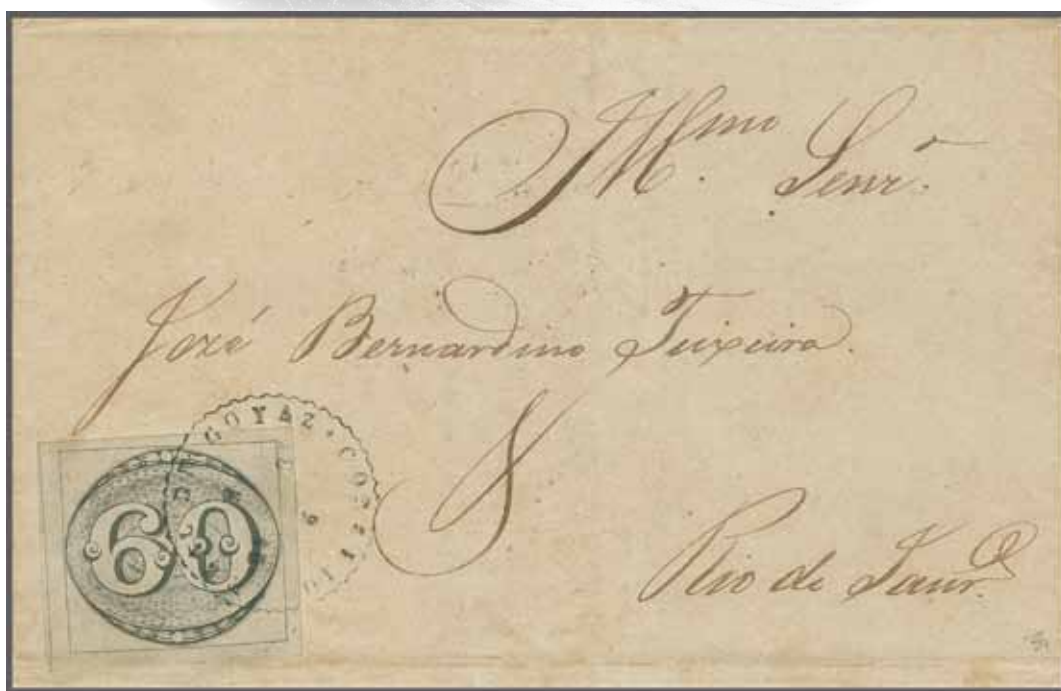 Illmo. Senr.
José Bernardino Teixeira.
S
GOYAZ. CORREIO
60
Rio de Janr.o